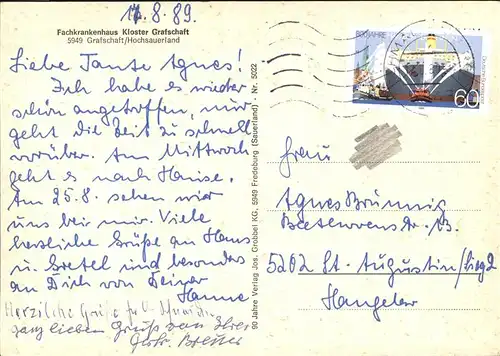 17.8.89.
Fachkrankenhaus Kloster Grafschaft
5949 Grafschaft/Hochsauerland
Liebe Tante Agnes!
Ich habe es wieder
schön angetroffen, nur
geht die Zeit zu schnell
vorüber. Am Mittwoch
geht es nach Hause.
Am 25.8. sehen wir
uns bei mir. Viele
herzliche Grüße an Hans
u. Gretel und besonders
an Dich von Deiner
Hanne
Herzliche Grüße
ganz lieben Gruß von Ihrer
90 Jahre Verlag Jos. Grobbel KG, 5949 Fredeburg (Sauerland) · Nr. 5022
800 JAHRE
60
Frau
Agnes Brünnig
Beethovenstr.
5202 St. Augustin/Sieg 2
Hangelar